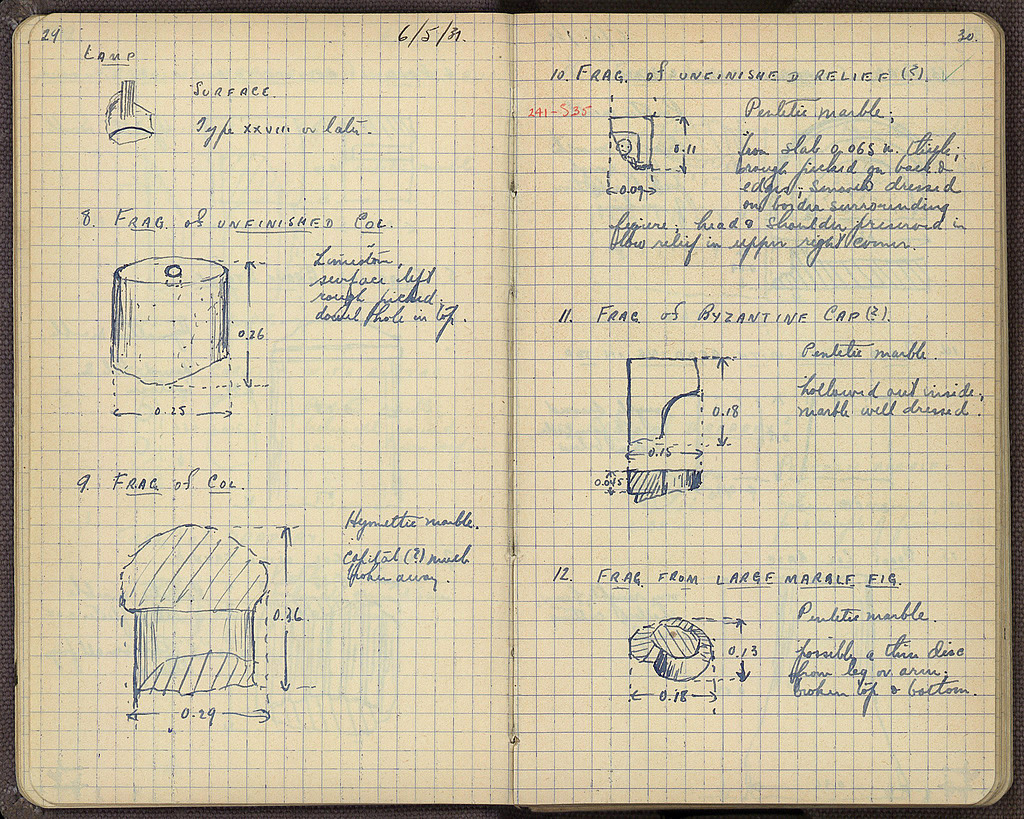 29
6/5/31.
LAMP
SURFACE.
Type XXVIII or later.
8. FRAG. of UNFINISHED COL.
Limestone,
surface left
rough picked.
dowel hole in top.
0.26
0.25
9. FRAG. of COL.
Hymettic marble.
Capital (?) much
broken away.
0.36
0.29
30.
10. FRAG. of UNFINISHED RELIEF (?).
241-S35
Pentelic marble;
from slab 0.065 m. thick;
rough picked on back &
edges; smooth dressed
on border surrounding
figure; head & shoulder preserved in
low relief in upper right corner.
0.11
0.09
11. FRAG. of BYZANTINE CAP (?).
Pentelic marble.
hollowed out inside,
marble well dressed.
0.18
0.15
0.045
12. FRAG. FROM LARGE MARBLE FIG.
Pentelic marble.
possibly a thin disc
from leg or arm,
broken top & bottom.
0.13
0.18